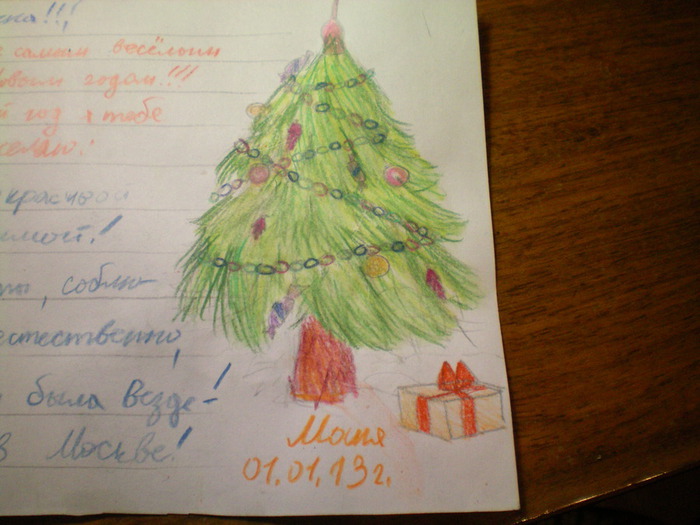 самым весёлым
Новым годом!!!
год я тебе
желаю:
красивой
, соблю-
естественно,
была везде-!
в Москве!
Маша
01.01.13г.